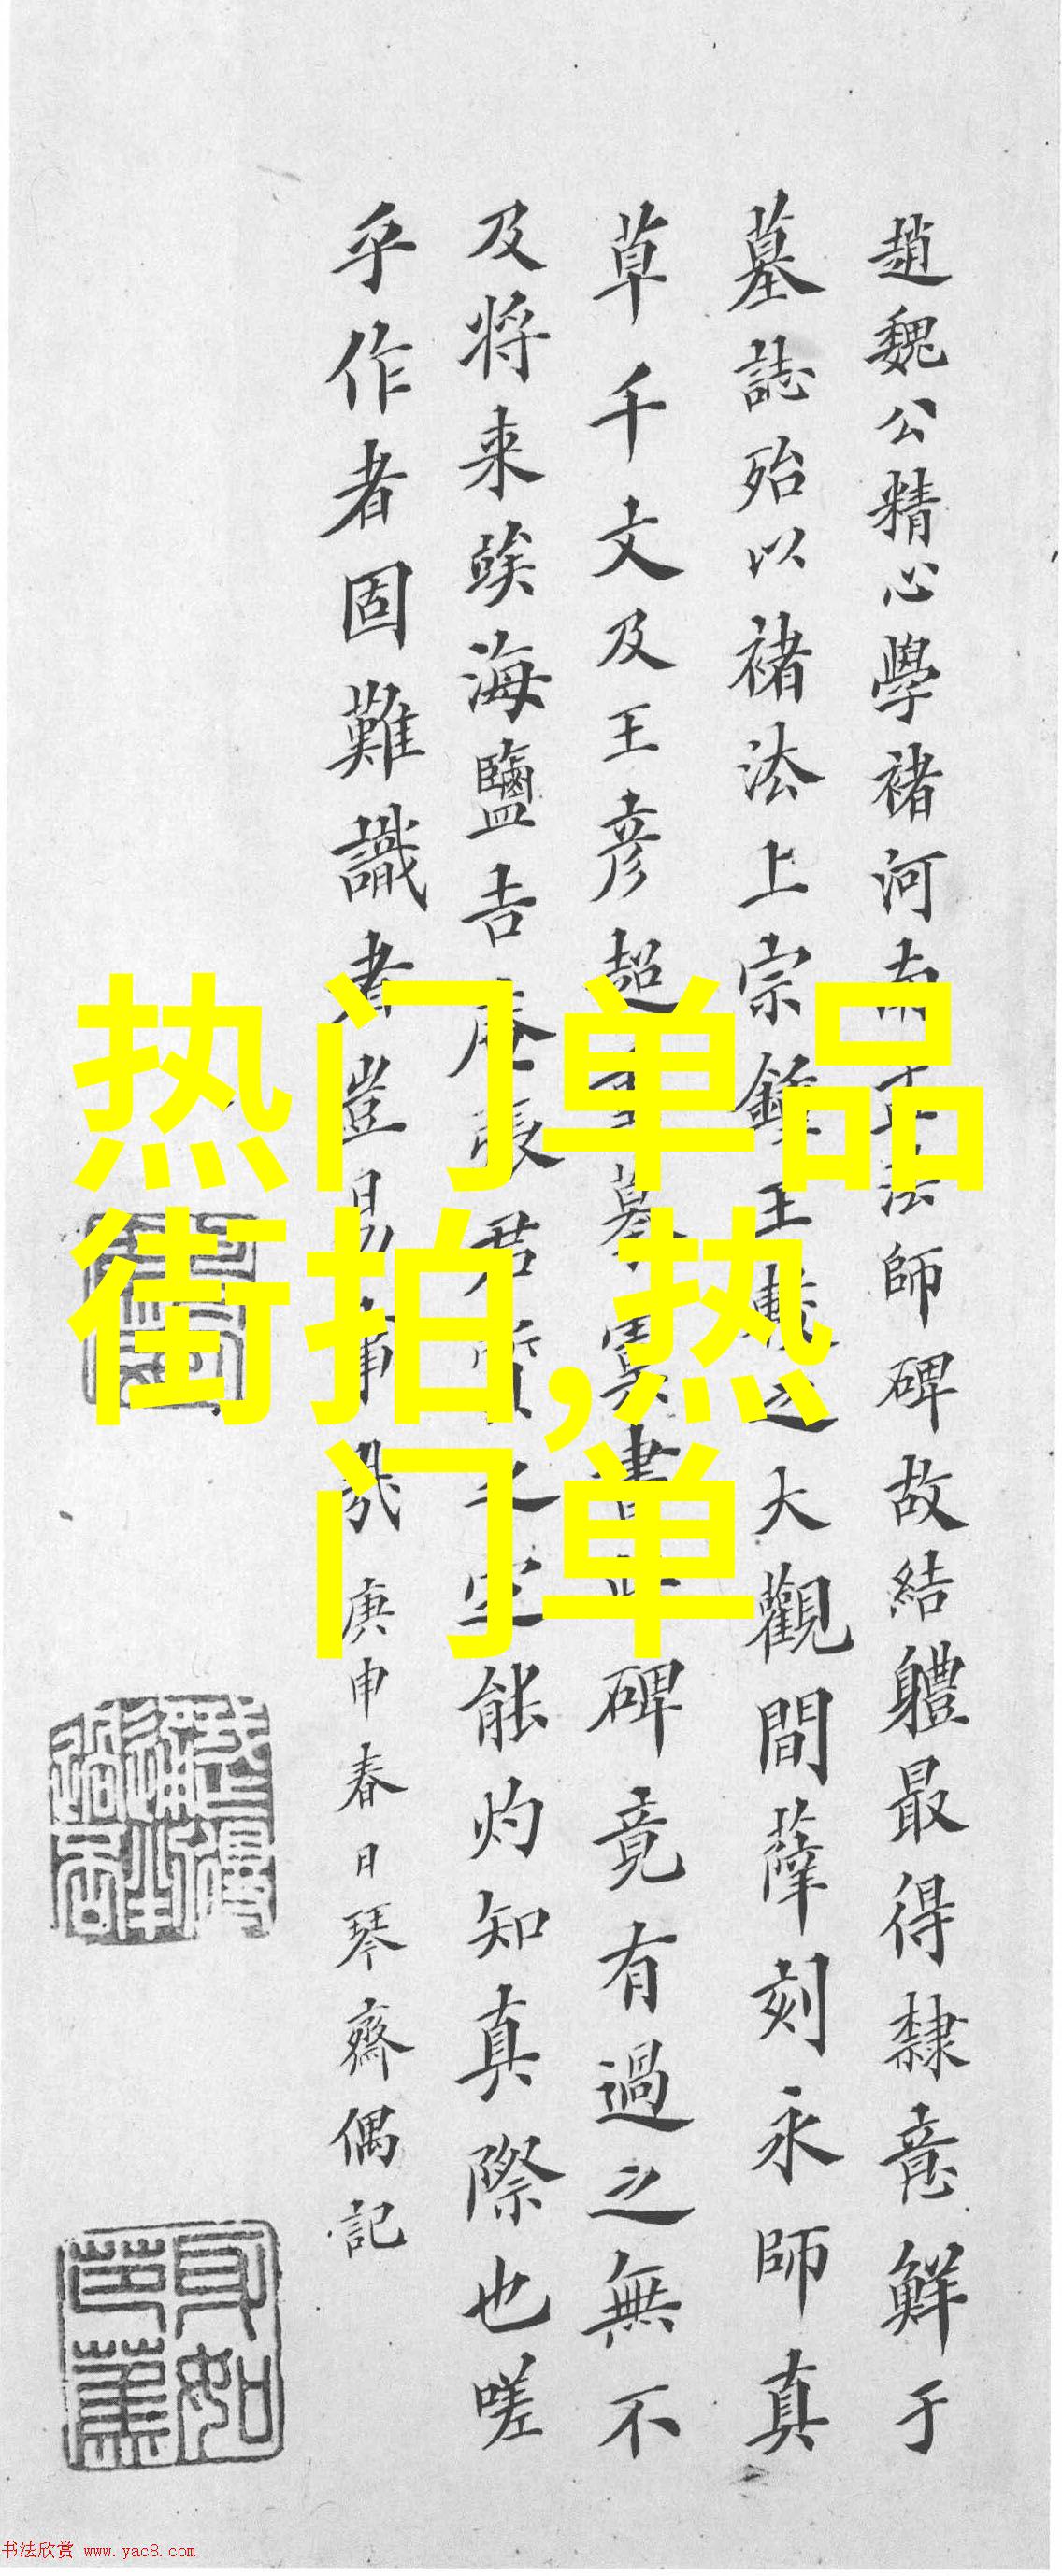 趙魏公精心學褚河南正法師碑故結軆最得隸意鮮于
墓誌殆以褚法上宗鍾王之大觀間薛刻永師真
草千文及王彦超墓書碑竟有過之無不
及将来竢海鹽吉張君質之定能灼知真際也嗟
乎作者固難識者豈易事哉庚申春日琴齋偶記
热门单品
街拍,热
门单
书法欣赏 www.yac8.com